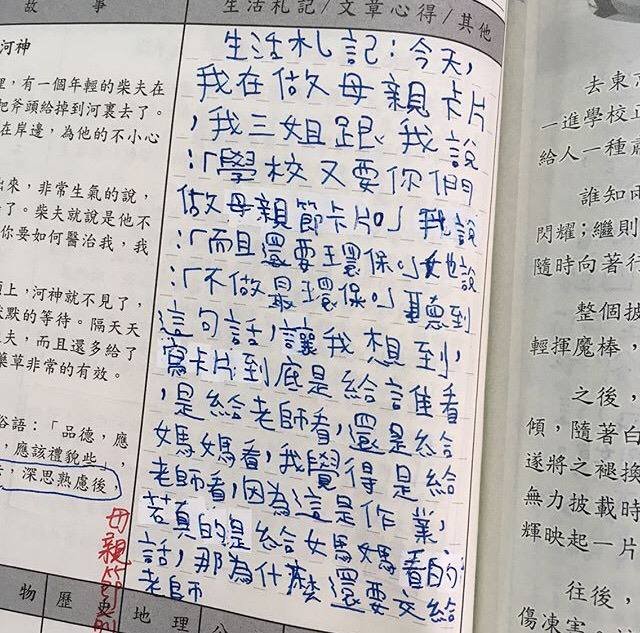 故事
河神
，有一個年輕的柴夫在
把斧頭給掉到河裏去了。
在岸邊，為他的不小心
出來，非常生氣的說，
了。柴夫就說是他不
你要如何醫治我，我
上，河神就不見了，
默的等待。隔天天
夫，而且還多給了
藥草非常的有效。
俗語：「品德，應
，應該禮貌些，
；深思熟慮後
母親節到
生活札記/文章心得/其他
生活札記：今天，
我在做母親卡片
，我三姐跟我說
：「學校又要你們
做母親節卡片。」我說
：「而且還要環保。」她說
：「不做最環保。」聽到
這句話，讓我想到，
寫卡片到底是給誰看
，是給老師看，還是給
媽媽看，我覺得是給
老師看，因為這是作業，
若真的是給媽媽看的
話，那為什麼還要交給
老師
物 歷史 地理 公
去東
一進學校
給人一種
誰知
閃耀；繼則
隨時向著行
整個披
輕揮魔棒，
之後，
傾，隨著白
遂將之褪換
無力披載時
輝映起一片
往後，
傷凍害。